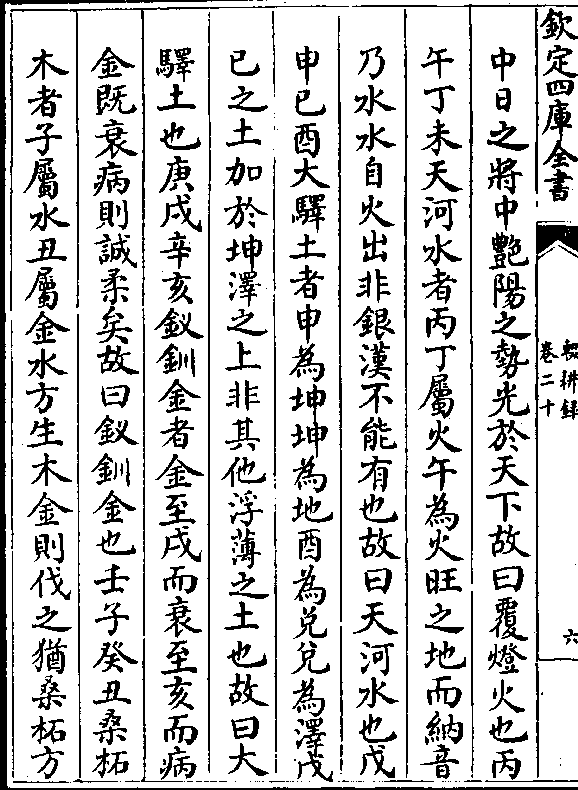 欽定四庫全書
輟耕録
卷二十
六
中日之將中艷陽之勢光於天下故曰覆燈火也丙
午丁未天河水者丙丁屬火午為火旺之地而納音
乃水水自火出非銀漢不能有也故曰天河水也戊
申已酉大驛土者申為坤坤為地酉為兑兑為澤戊
已之土加於坤澤之上非其他浮薄之土也故曰大
驛土也庚戌辛亥釵釧金者金至戌而衰至亥而病
金既衰病則誠柔矣故曰釵釧金也壬子癸丑桑柘
木者子屬水丑屬金水方生木金則伐之猶桑柘方